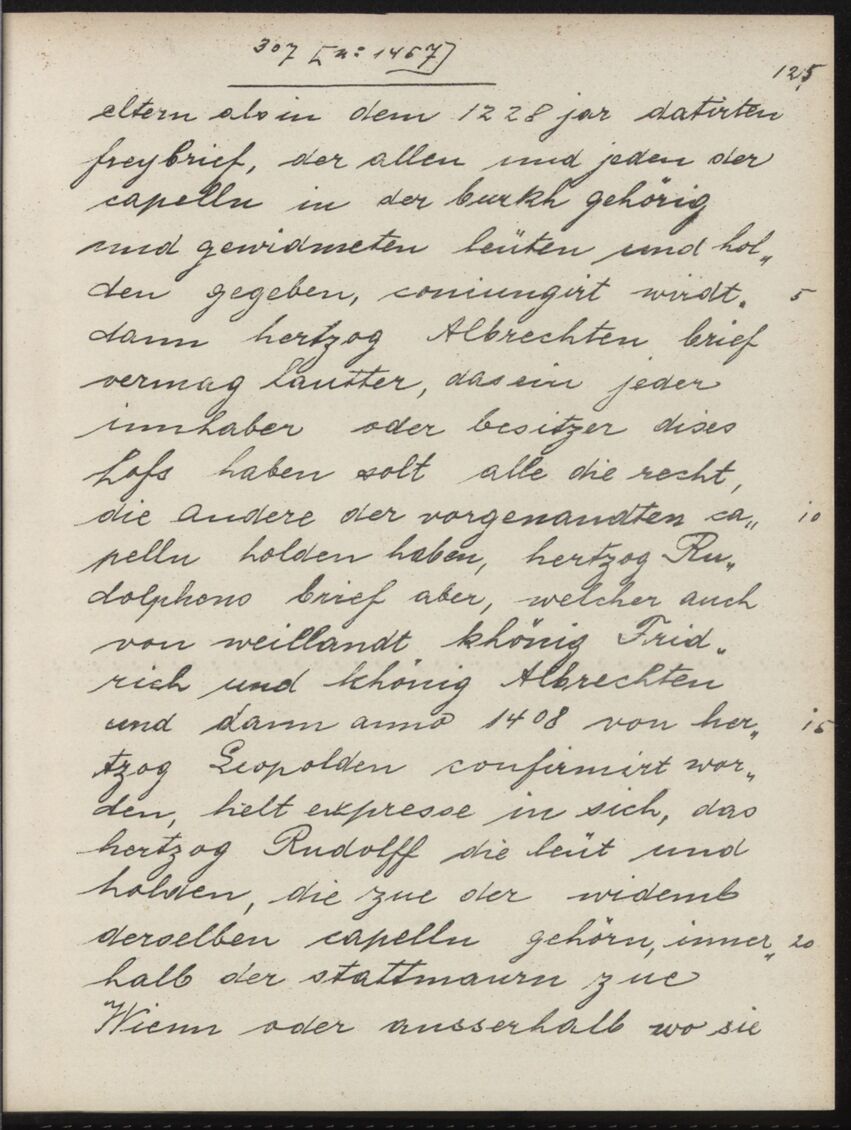 307 [n: 1467]
125
eltern als in dem 1228 jar datirten
freybrief, der allen und jeden der
capelln in der burkh gehörig
und gewidmeten leüten und hol„
den gegeben, coniungirt wirdt. 5
dann hertzog Albrechten brief
vermag lautter, das ein jeder
innhaber oder besitzer dises
hofs haben solt alle die recht,
die andere der vorgenandten ca„ 10
pelln holden haben, hertzog Ru„
dolphens brief aber, welcher auch
von weillandt khönig Frid„
rich und khönig Albrechten
und dann anno 1408 von her„ 15
tzog Leopolden confirmirt wor„
den, helt expresse in sich, das
hertzog Rudolff die leüt und
holden, die zue der widemb
derselben capelln gehörn, inner„ 20
halb der stattmaurn zue
Wienn oder ausserhalb wo sie